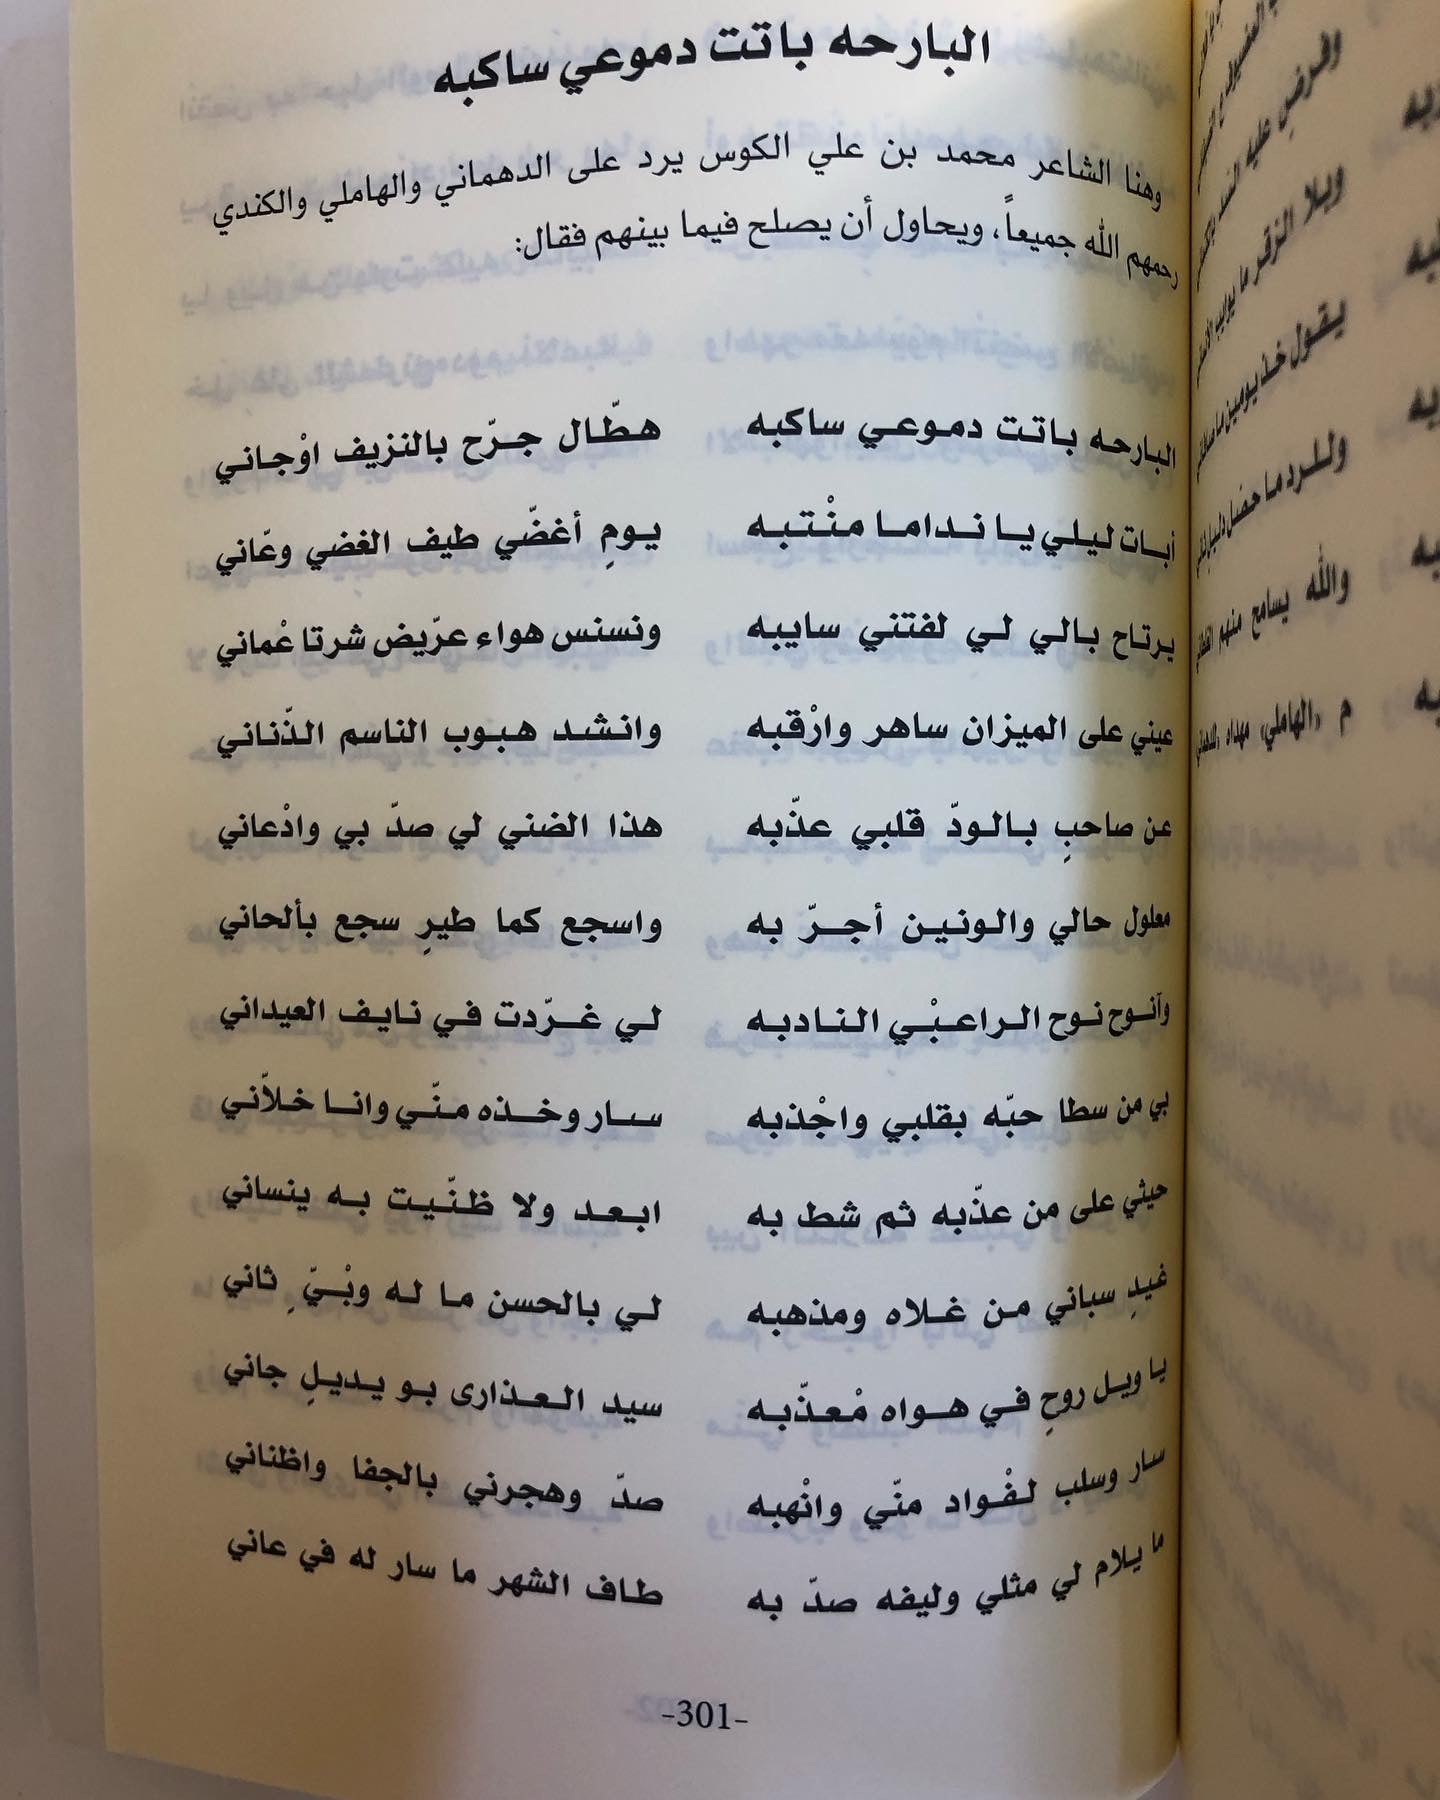 البارحه باتت دموعي ساكبه
وهنا الشاعر محمد بن علي الكوس يرد على الدهماني والهاملي والكندي
رحمهم الله جميعاً، ويحاول أن يصلح فيما بينهم فقال:
البارحه باتت دموعي ساكبه هطّال جرّح بالنزيف اوْجاني
أبات ليلي يا نداما منْتبه يومِ أغضّي طيف الغضي وعّاني
يرتاح بالي لي لفتني سايبه ونسنس هواء عرّيض شرتا عْماني
عيني على الميزان ساهر وارْقبه وانشد هبوب الناسم الذّناني
عن صاحبِ بالودّ قلبي عذّبه هذا الضني لي صدّ بي وادْعاني
معلول حالي والونين أجرّ به واسجع كما طيرِ سجع بألحاني
وآنوح نوح الراعبْي النادبه لي غرّدت في نايف العيداني
بي من سطا حبّه بقلبي واجْذبه سار وخذه منّي وانا خلاّني
حيثي على من عذّبه ثم شط به ابعد ولا ظنّيت به ينساني
غيدِ سباني من غلاه ومذهبه لي بالحسن ما له وبْيِّ ثاني
يا ويل روحِ في هواه مْعذّبه سيد العذارى بو يديلِ جاني
سار وسلب لفْواد منّي وانْهبه صدّ وهجرني بالجفا واظناني
ما يلام لي مثلي وليفه صدّ به طاف الشهر ما سار له في عاني
-301-
الرضى عليه
وبلا الزقر ما
يقول خذ يومين ما
وللرد ما حصّل دليل
والله يسامح منهم
م «الهاملي» مهداه